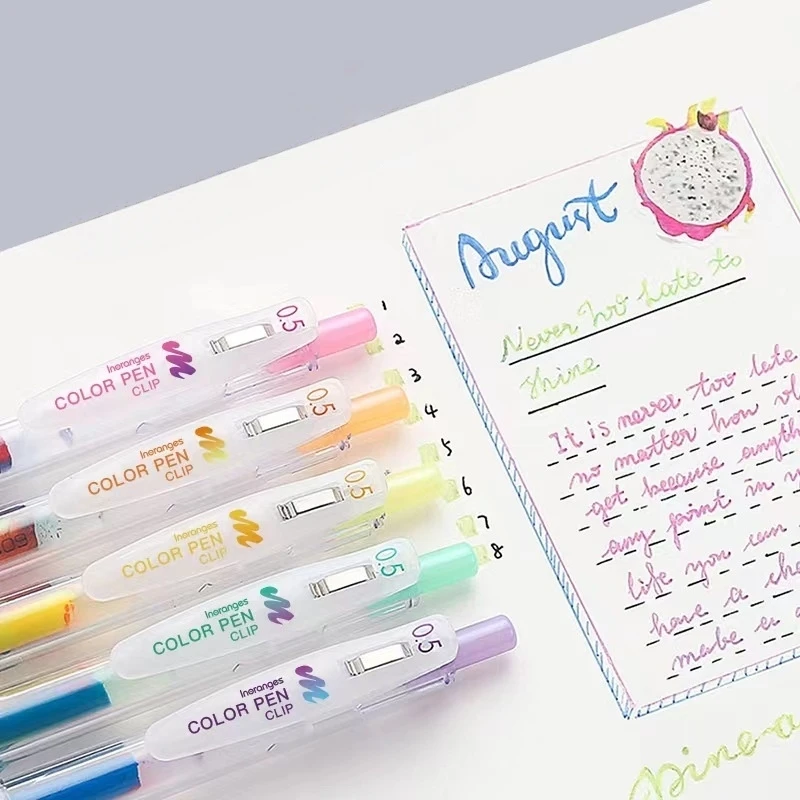 0.5
Inoranges
COLOR PEN
CLIP
0.5
Inoranges
COLOR PEN
CLIP
0.5
Inoranges
COLOR PEN
CLIP
0.5
Inoranges
COLOR PEN
CLIP
0.5
Inoranges
COLOR PEN
CLIP
1
2
3
4
5
6
7
8
August
Never Too Late to
Shine
It is never too late
no matter how
get because
any point in
life you can
have a
make a